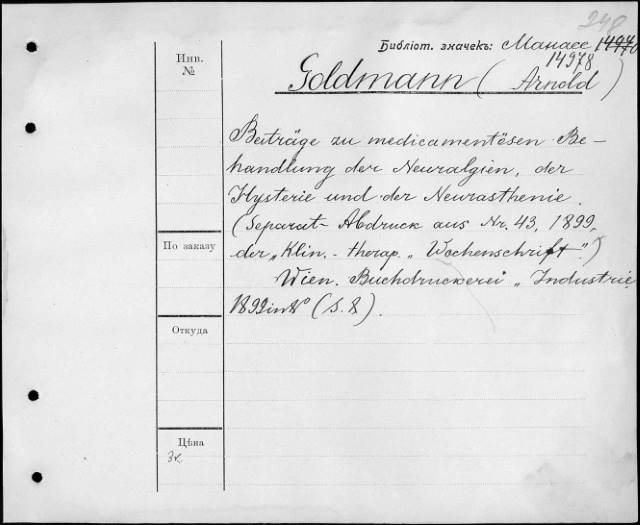 248
Библіот. значекъ: Манасе 14970
14978
Инв.
№
Goldmann (Arnold)
Beiträge zu medicamentösen Be-
handlung der Neuralgien, der
Hysterie und der Neurasthenie.
(Separat-Abdruck aus Nr. 43, 1899,
По заказу
der „Klin.-therap. „Wochenschrift".)
Wien. Buchdruckerei „Industrie
1899 in 8° (S. 8).
Откуда
Цѣна
3к.